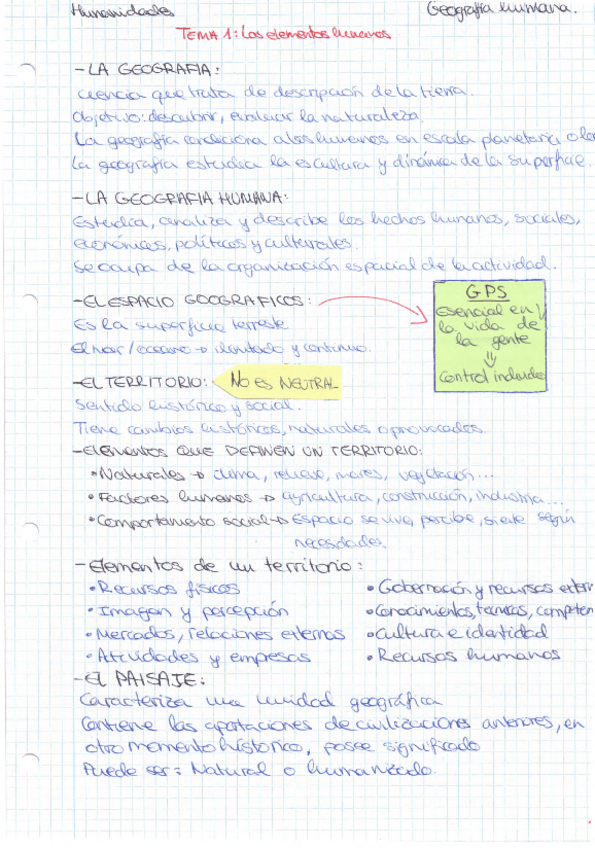 Humanidades
Geografía humana.
TEMA 1: Los elementos humanos
- LA GEOGRAFIA:
Ciencia que trata de descripción de la tierra.
Objetivo: descubrir, evaluar la naturaleza.
La geografía condiciona a los humanos en escala planetaria o
La geografía estudia la escultura y dinámica de la superficie.
- LA GEOGRAFIA HUMANA:
Estudia, analiza y describe los hechos humanos, sociales,
económicos, políticos y culturales.
Se ocupa de la organización espacial de la actividad.
- EL ESPACIO GEOGRAFICOS:
Es la superficie terreste
El mar/oceano → ilimitado y continuo.
GPS
Esencial en
la vida de
la gente
⇓
Control
- EL TERRITORIO:
NO ES NEUTRAL
Sentido histórico y social.
Tiene cambios históricos, naturales o provocados.
- Elementos QUE DEFINEN UN TERRITORIO:
• Naturales → clima, relieve, mares, vegetación...
• Factores humanos → agricultura, construcción, industria...
• Comportamento social → Espacio se vive, percibe, siente según
necesidades.
- Elementos de un territorio:
• Recursos físicos
• Imagen y percepción
• Mercados, relaciones externas
• Actividades y empresas
• Gobernación y recursos extern
• Conocimientos, técnicas, competen
• Cultura e identidad
• Recursos humanos
- EL PAISAJE:
Caracteriza una unidad geográfica
Contiene las aportaciones de civilizaciones anteriores, en
otro momento histórico, posee significado
Puede ser: Natural o humanizado.